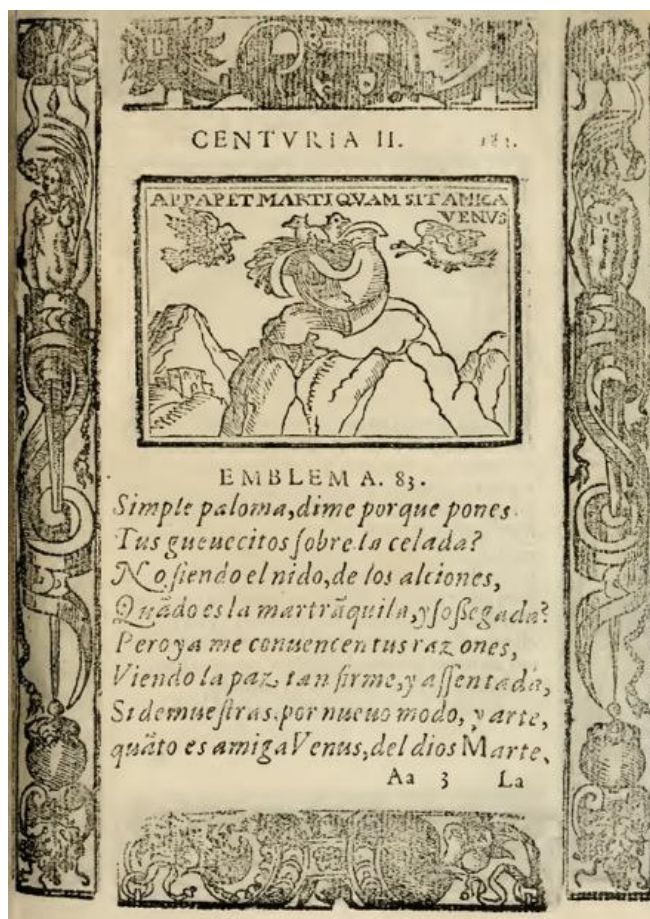 CENTVRIA II. 183.
APPARET MARTI QVAM SIT AMICA
VENVS
EMBLEMA. 83.
Simple paloma,dime porque pones
Tus gueuecitos ſobre la celada?
No ſiendo el nido,de los alciones,
Quãdo es la mar trãquila,y ſoſſegada?
Pero ya me conuencen tus razones,
Viendo la paz tan firme,y aſſentada,
Si demueſtras por nueuo modo, y arte,
quãto es amiga Venus,del dios Marte.
Aa 3 La